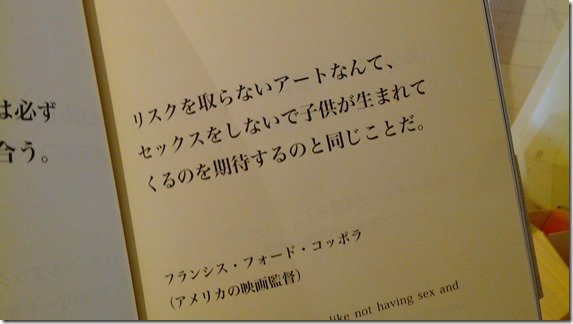 は必ず
合う。
リスクを取らないアートなんて、
セックスをしないで子供が生まれて
くるのを期待するのと同じことだ。
フランシス・フォード・コッポラ
（アメリカの映画監督）
like not having sex and